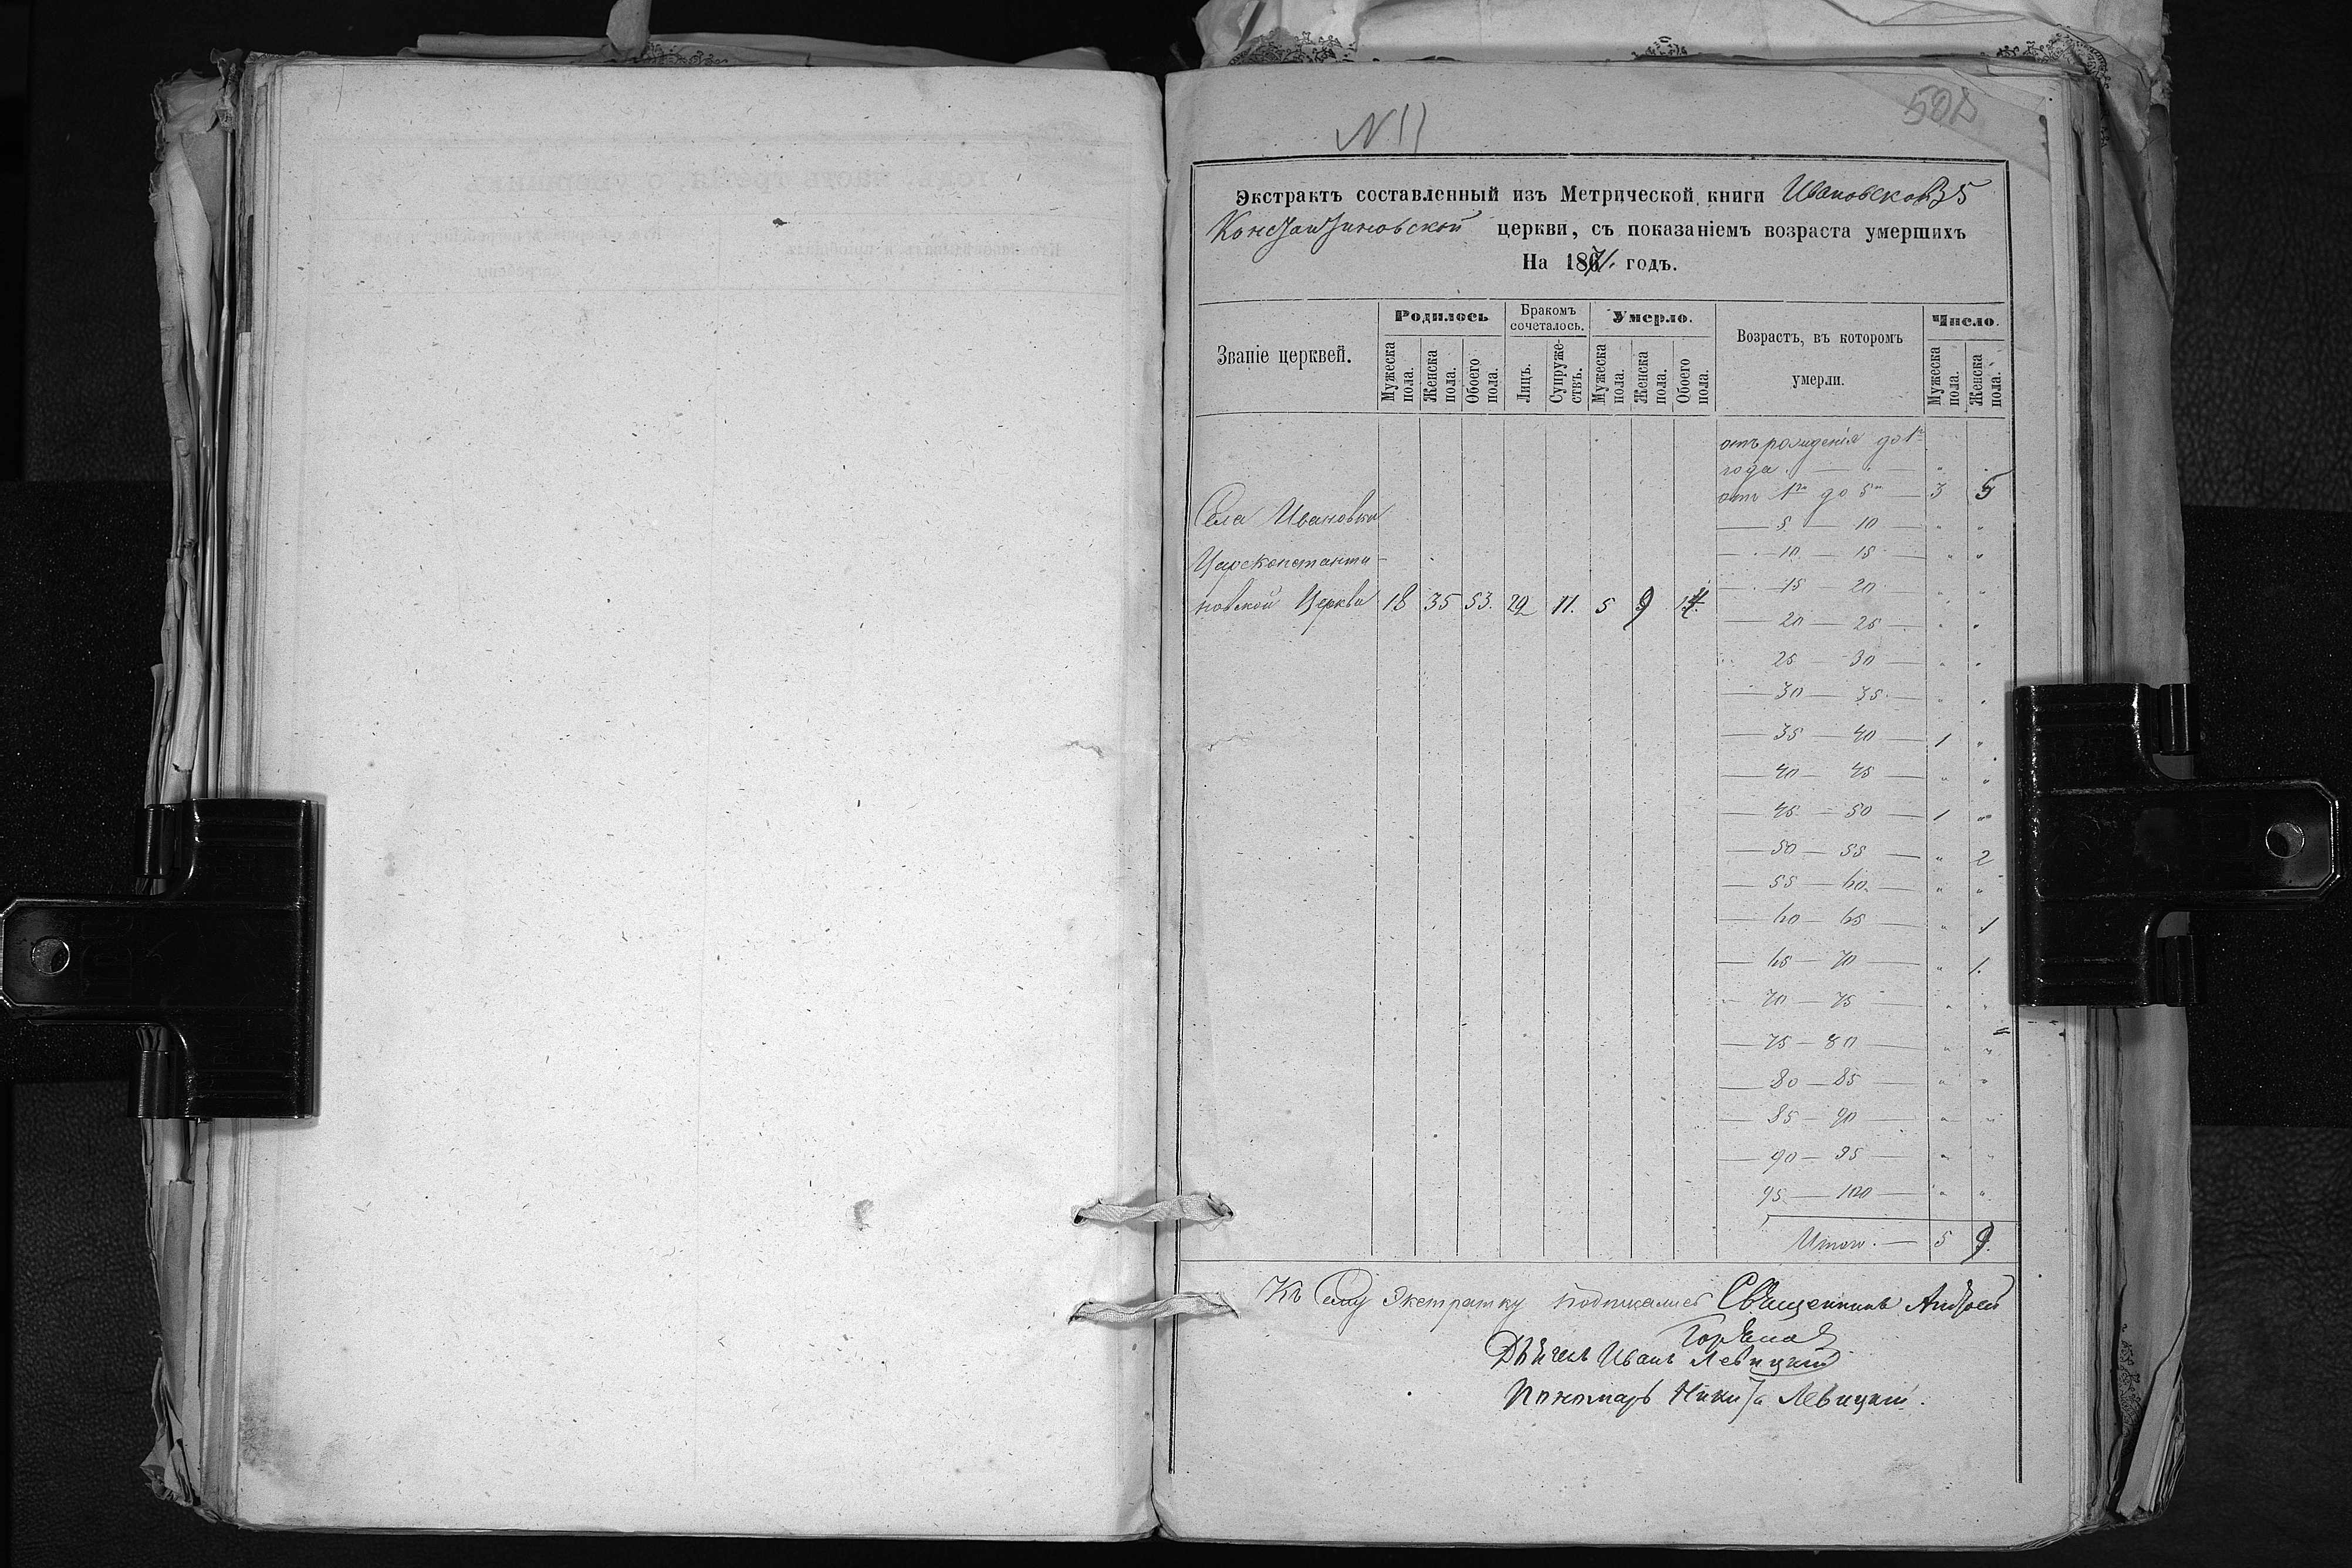 N 11
508
Экстрактъ составленный изъ Метрической книги Ивановской
35
Константиновской церкви, съ показаніемъ возраста умершихъ
На 1871. годъ.
Званіе церквей.
Родилось
Мужеска пола.
Женска пола.
Обоего пола.
Бракомъ сочеталось.
Лицъ.
Супружествъ.
Умерло.
Мужеска пола.
Женска пола.
Обоего пола.
Возрастъ, въ которомъ
умерли.
Число.
Мужеска пола.
Женска пола.
Села Ивановки
Цареконстанти-
новской Церкви 18 35 53. 22 11. 5 9 14.
отъ рожденія до 1го
года. — " — " "
отъ 1го до 5ти — 3 5
— 5 — 10 — " "
— 10 — 15 — " "
— 15 — 20 " "
— 20 — 25 " "
25 — 30 — " "
— 30 — 35. — " "
— 35 — 40 — 1 "
— 40 — 45 — " "
— 45 — 50 — 1 "
— 50 — 55 — " 2
— 55 — 60. — " "
— 60 — 65 — " 1
— 65 — 70 — " 1.
— 70 — 75 — " "
— 75 — 80 — " "
— 80 — 85 — " "
— 85 — 90 — " "
— 90 — 95 — " "
95. — 100 — " "
Итого. — 5 9.
Къ сему Экстракту подписались Священникъ Андрей
Иванъ Левицкій
Пономарь Никита Левицкій.